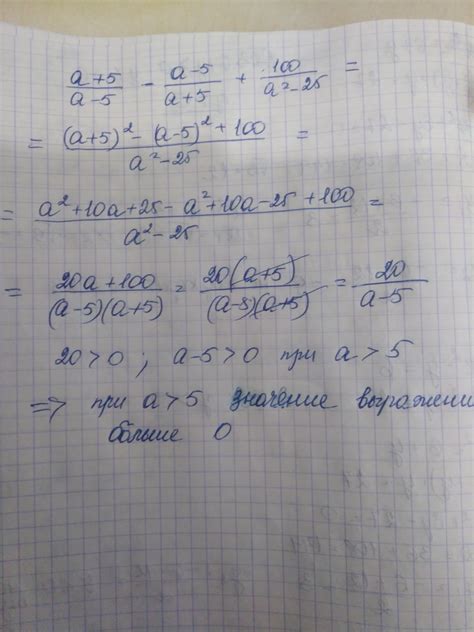 (a+5)/(a-5) - (a-5)/(a+5) + 100/(a²-25) =
= ((a+5)² - (a-5)² + 100)/(a²-25) =
= (a²+10a+25-a²+10a-25+100)/(a²-25) =
= (20a+100)/((a-5)(a+5)) = 20(a+5)/((a-5)(a+5)) = 20/(a-5)
20>0 ; a-5>0 при a>5
=> при a>5 значение выражени
больше 0